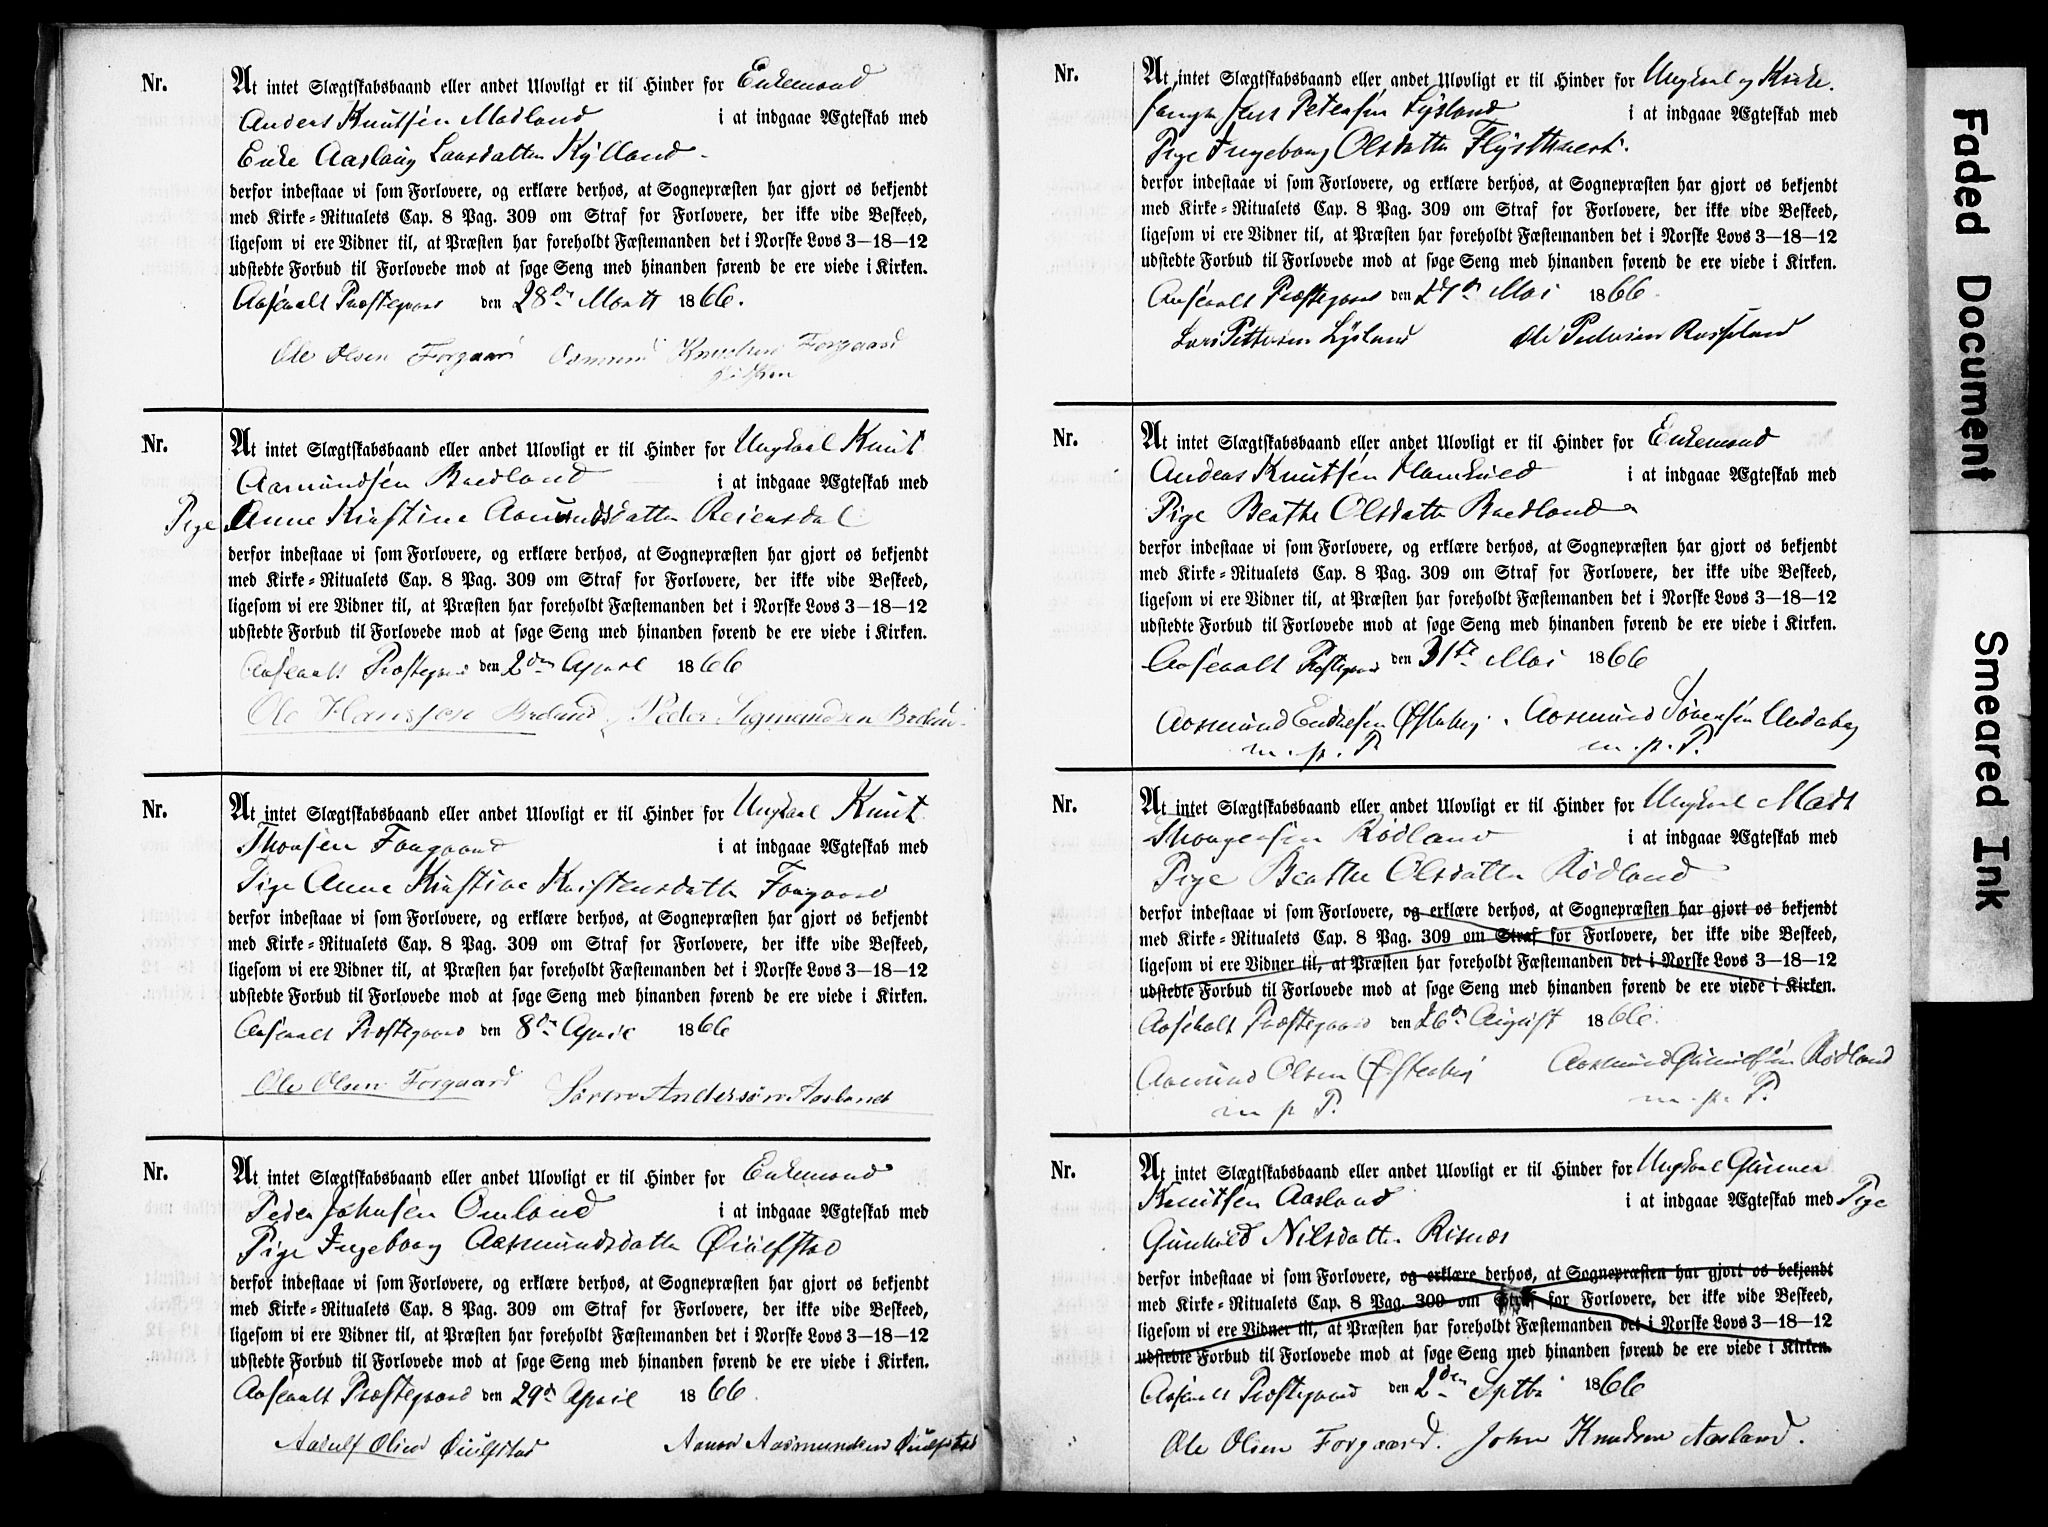 Nr. At intet Slægtskabsbaand eller andet Ulovligt er til Hinder for Enkemand
Anders Knutsén Madland i at indgaae Ægteskab med
Enke Aaslaug Larsdatter Kylland
derfor indestaae vi som Forlovere, og erklære derhos, at Sognepræsten har gjort os bekjendt
med Kirke-Ritualets Cap. 8 Pag. 309 om Straf for Forlovere, der ikke vide Beskeed,
ligesom vi ere Vidner til, at Præsten har foreholdt Fæstemanden det i Norske Lovs 3—18—12
udstedte Forbud til Forlovede mod at søge Seng med hinanden førend de ere viede i Kirken.
Aaseralt Præstegaard den 28de Marts 1866.
Ole Olsen Forgaard Knudsen Forgaard
Nr. At intet Slægtskabsbaand eller andet Ulovligt er til Hinder for Ungkarl Knut
Aamundsén Bredland i at indgaae Ægteskab med
Pige Anne Kirstine Aamundsdatter Reiersdal
derfor indestaae vi som Forlovere, og erklære derhos, at Sognepræsten har gjort os bekjendt
med Kirke-Ritualets Cap. 8 Pag. 309 om Straf for Forlovere, der ikke vide Beskeed,
ligesom vi ere Vidner til, at Præsten har foreholdt Fæstemanden det i Norske Lovs 3—18—12
udstedte Forbud til Forlovede mod at søge Seng med hinanden førend de ere viede i Kirken.
Aaseralt Præstegaard den 2den April 1866
Ole Hansen Bredland Peder Sigmundsen Bredland
Nr. At intet Slægtskabsbaand eller andet Ulovligt er til Hinder for Ungkarl Knut
Thorsén Forgaard i at indgaae Ægteskab med
Pige Anne Kirstine Kristensdatter Forgaard
derfor indestaae vi som Forlovere, og erklære derhos, at Sognepræsten har gjort os bekjendt
med Kirke-Ritualets Cap. 8 Pag. 309 om Straf for Forlovere, der ikke vide Beskeed,
ligesom vi ere Vidner til, at Præsten har foreholdt Fæstemanden det i Norske Lovs 3—18—12
udstedte Forbud til Forlovede mod at søge Seng med hinanden førend de ere viede i Kirken.
Aaseralt Præstegaard den 8de April 1866
Ole Olsen Forgaard Søren Andersøn Aasland
Nr. At intet Slægtskabsbaand eller andet Ulovligt er til Hinder for Enkemand
Peder Johnsén Omland i at indgaae Ægteskab med
Pige Ingeborg Aasmundsdatter Øiulfstad
derfor indestaae vi som Forlovere, og erklære derhos, at Sognepræsten har gjort os bekjendt
med Kirke-Ritualets Cap. 8 Pag. 309 om Straf for Forlovere, der ikke vide Beskeed,
ligesom vi ere Vidner til, at Præsten har foreholdt Fæstemanden det i Norske Lovs 3—18—12
udstedte Forbud til Forlovede mod at søge Seng med hinanden førend de ere viede i Kirken.
Aaseralt Præstegaard den 29de April 1866.
Aadulf Olsen Øiulfstad Aanon Aasmundsen Øiulfstad
Nr. At intet Slægtskabsbaand eller andet Ulovligt er til Hinder for Ungkarl og Kirke-
sanger Lars Petersén Lysland i at indgaae Ægteskab med
Pige Ingeborg Olsdatter Flystveit.
derfor indestaae vi som Forlovere, og erklære derhos, at Sognepræsten har gjort os bekjendt
med Kirke-Ritualets Cap. 8 Pag. 309 om Straf for Forlovere, der ikke vide Beskeed,
ligesom vi ere Vidner til, at Præsten har foreholdt Fæstemanden det i Norske Lovs 3—18—12
udstedte Forbud til Forlovede mod at søge Seng med hinanden førend de ere viede i Kirken.
Aaseralt Præstegaard den Mai 1866.
Lars Pettersen Lysland Ole Pedersen Rosseland
Nr. At intet Slægtskabsbaand eller andet Ulovligt er til Hinder for Enkemand
Anders Knutsén Hamkold i at indgaae Ægteskab med
Pige Beathe Olsdatter Bredland
derfor indestaae vi som Forlovere, og erklære derhos, at Sognepræsten har gjort os bekjendt
med Kirke-Ritualets Cap. 8 Pag. 309 om Straf for Forlovere, der ikke vide Beskeed,
ligesom vi ere Vidner til, at Præsten har foreholdt Fæstemanden det i Norske Lovs 3—18—12
udstedte Forbud til Forlovede mod at søge Seng med hinanden førend de ere viede i Kirken.
Aaseralt Præstegaard den 31te Mai 1866
Aasmund Endresén Østerberg. Aasmund Sørensén Undeberg
m. p. P. m. p. P.
Nr. At intet Slægtskabsbaand eller andet Ulovligt er til Hinder for Ungkarl Mads
Thorgersen Rødland i at indgaae Ægteskab med
Pige Beathe Olsdatter Rødland
derfor indestaae vi som Forlovere, og erklære derhos, at Sognepræsten har gjort os bekjendt
med Kirke-Ritualets Cap. 8 Pag. 309 om Straf for Forlovere, der ikke vide Beskeed,
ligesom vi ere Vidner til, at Præsten har foreholdt Fæstemanden det i Norske Lovs 3—18—12
udstedte Forbud til Forlovede mod at søge Seng med hinanden førend de ere viede i Kirken.
Aaseralt Præstegaard den 26de August 1866.
Aasmund Olsen Østerberg Aasmund Gunulfsén Rødland
m p P. m. p. P.
Nr. At intet Slægtskabsbaand eller andet Ulovligt er til Hinder for Ungkarl Gunner
Knutsén Aasland i at indgaae Ægteskab med Pige
Gunhild Nilsdatter Risnes
derfor indestaae vi som Forlovere, og erklære derhos, at Sognepræsten har gjort os bekjendt
med Kirke-Ritualets Cap. 8 Pag. 309 om Straf for Forlovere, der ikke vide Beskeed,
ligesom vi ere Vidner til, at Præsten har foreholdt Fæstemanden det i Norske Lovs 3—18—12
udstedte Forbud til Forlovede mod at søge Seng med hinanden førend de ere viede i Kirken.
Aaseralt Præstegaard den 2den Septbr 1866
Ole Olsen Forgaard. John Knudsen Aasland.
Faded Document
Smeared Ink